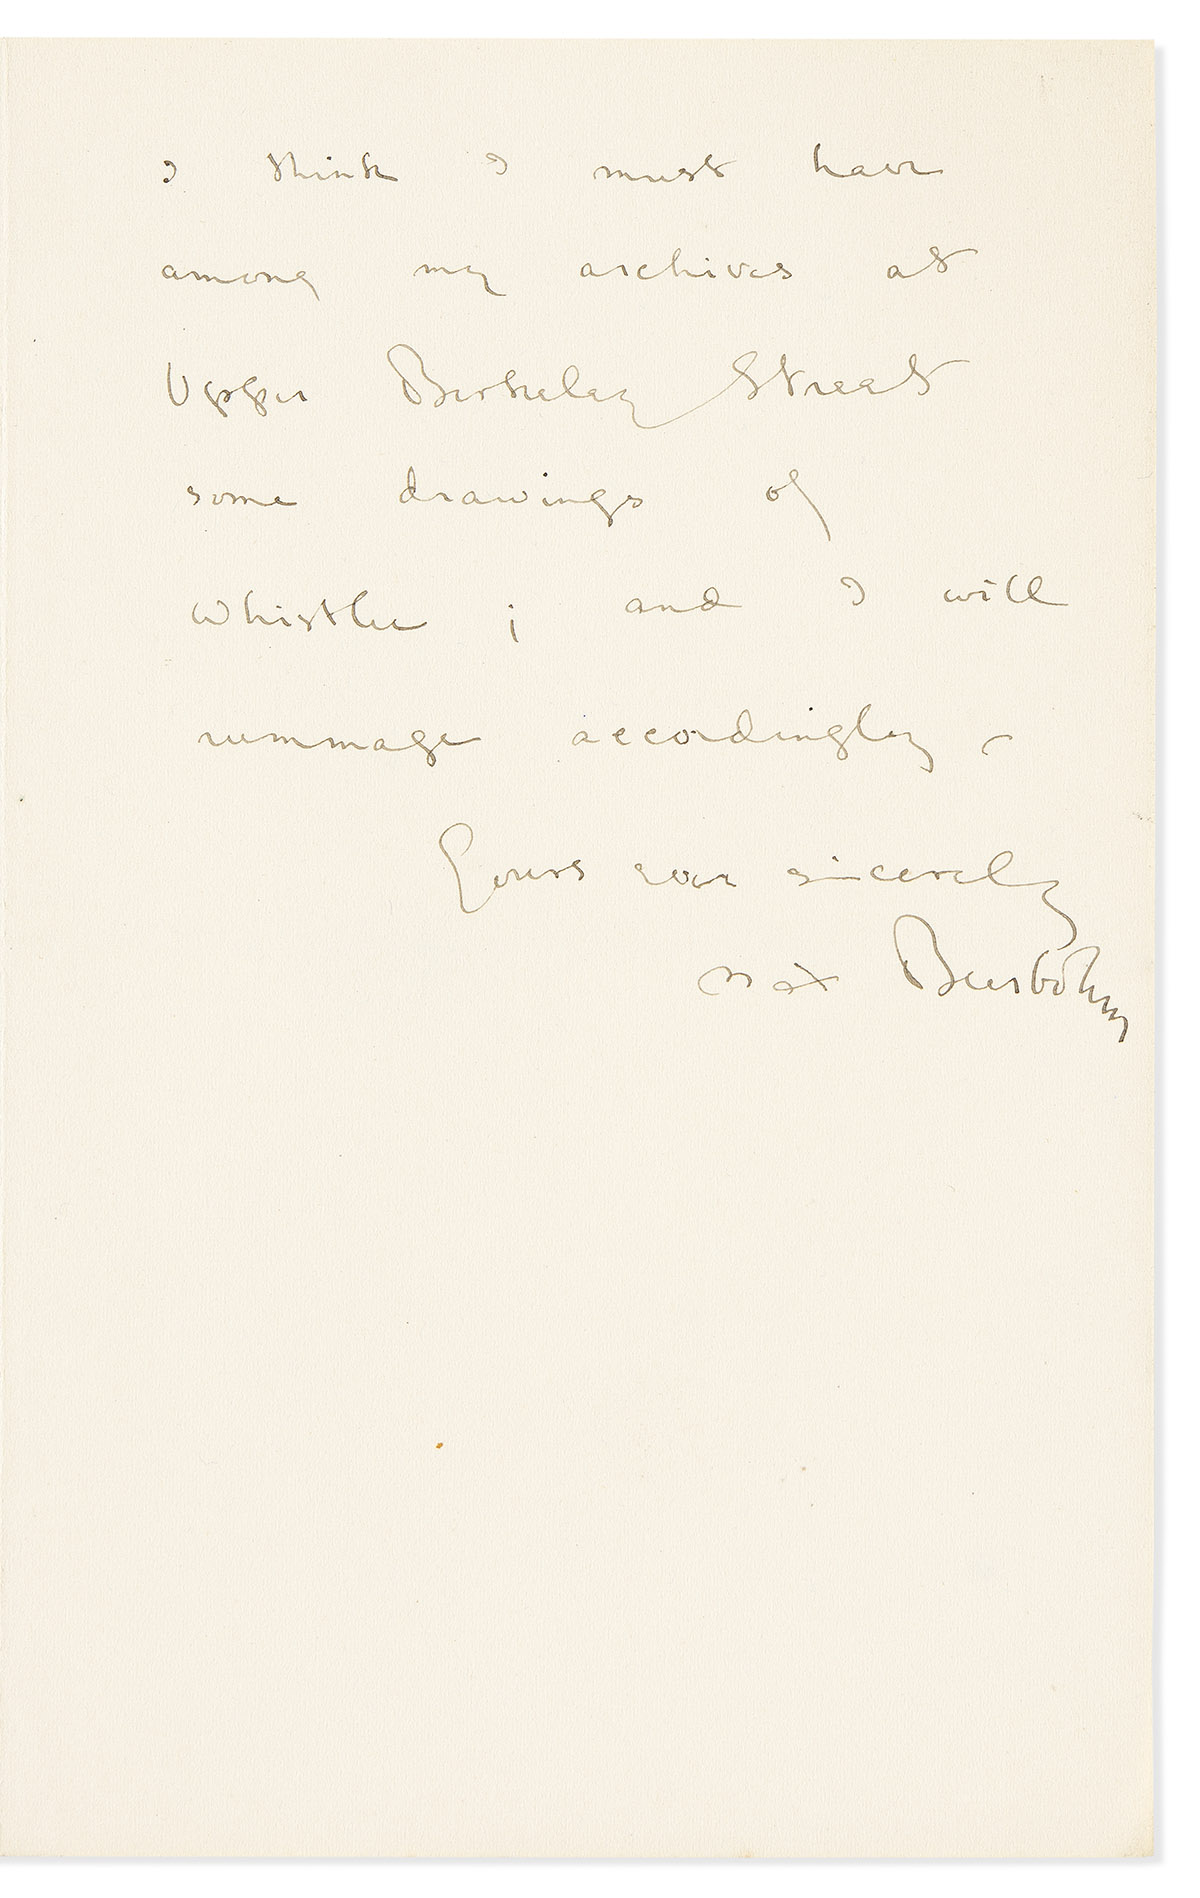 I think I must have
among my archives at
Upper Berkeley Street
some drawings of
Whistler ; and I will
rummage accordingly –
Yours very sincerely
Max Beerbohm